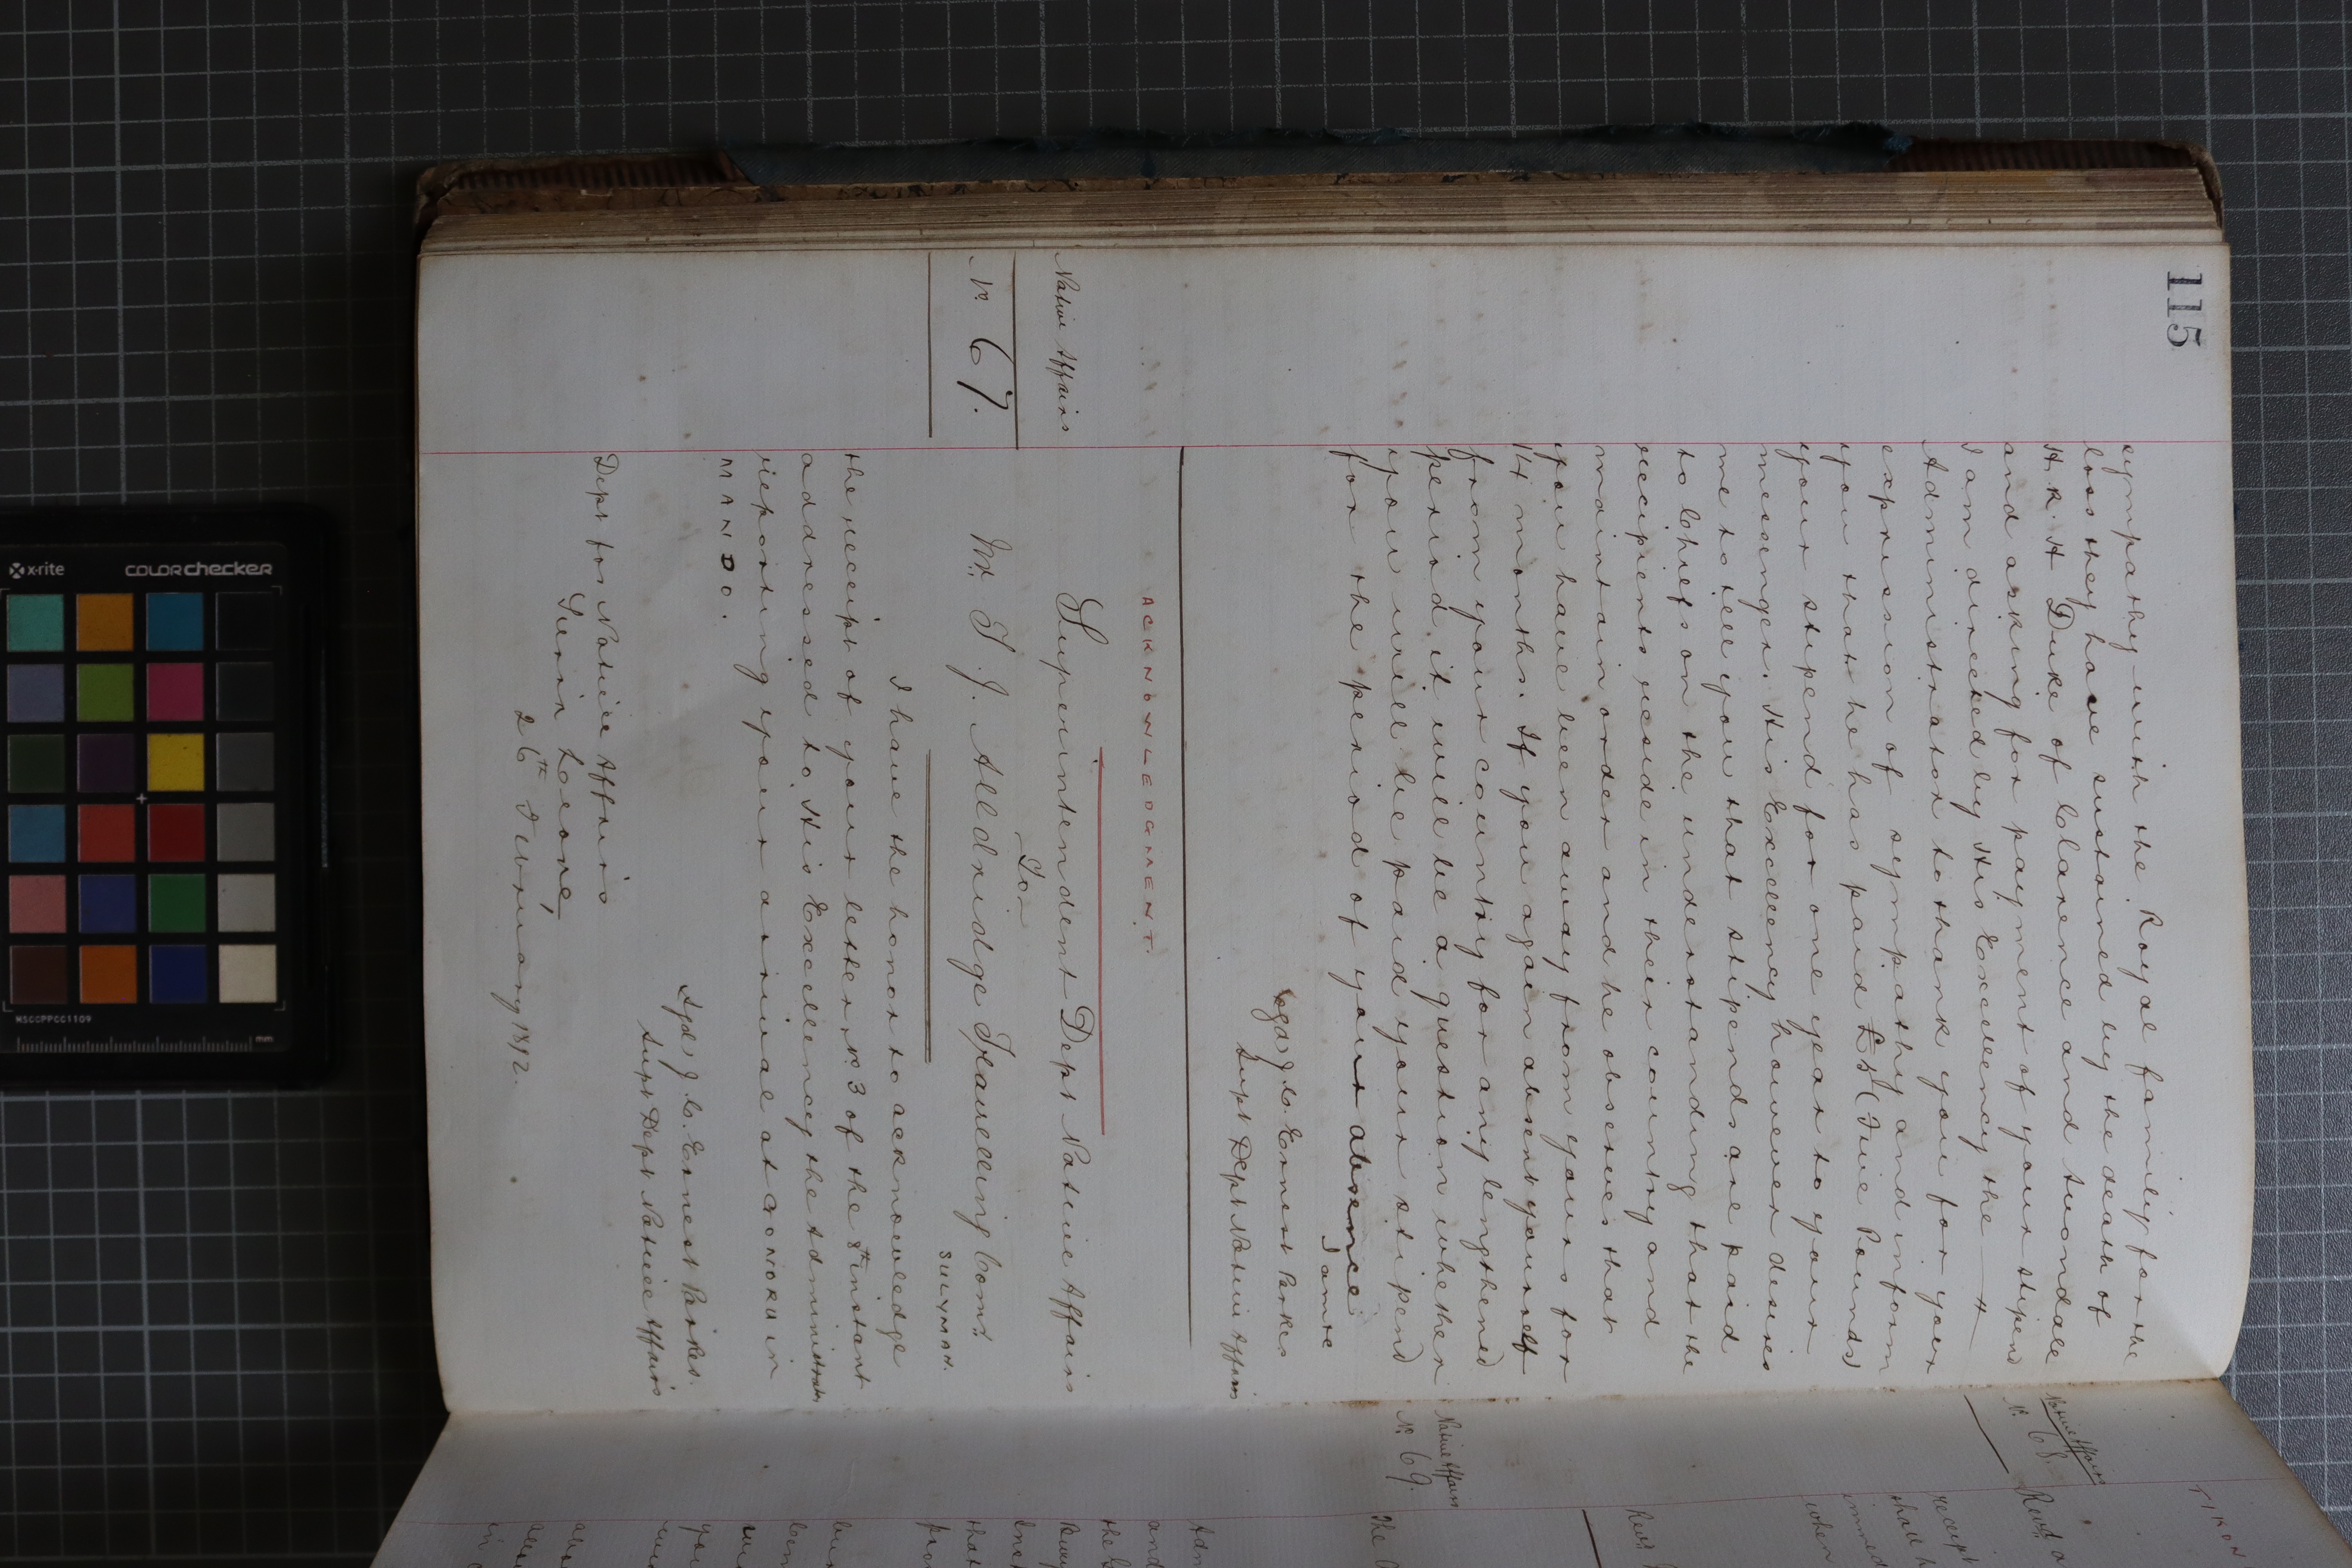 115
sympathy with the Royal family for the
loss they have sustained by the death of
H.R.H Duke of Clarence and Avondale
and asking for payment of your stipend
I am directed by His Excellency the
Administrator to thank you for your
expression of sympathy and inform
you that he has paid £5 (Five Pounds)
your stipend for one year to your
messenger. His Excellency however desires
me to tell you that stipends are paid
to Chiefs on the understanding that the
recipients reside in their country and
maintain order and he observes that
you have been away from yours for
14 months. If you again absent yourself
from your country for any lengthened
period it will be a question whether
you will be paid your stipend
for the period of your absence.
I am &c
sgd J. C. Ernest Parkes
Supt Dept Native Affairs
ACKNOWLEDGMENT.
Native Affairs
No. 67.
Superintendent Dept Native Affairs
To
Mr. T. J. Alldridge Travelling Comr.
SULYMAH.
I have the honor to acknowledge
the receipt of your letter No 3 of the 8th instant
addressed to His Excellency the Administrator
reporting your arrival at GONORU in
MANDO.
Sgd J. C. Ernest Parkes.
Supt Dept Native Affairs
Dept for Native Affairs
Sierra Leone,
26th February 1892.
TIKON
Native Affairs
No. 68.
Revd
receipt
that h
immed
when
Revd
Native Affairs
No. 69.
The
Adm
and
the
that
you
in